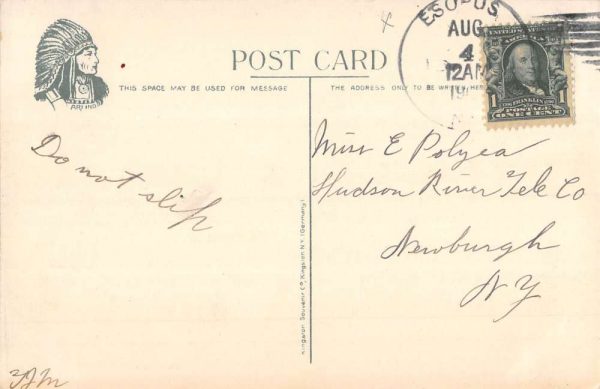 ESOPUS
AUG
4
12AM
POST CARD
THIS SPACE MAY BE USED FOR MESSAGE
THE ADDRESS ONLY TO BE WRITTEN HERE
UNITED STATES OF AMERICA
FRANKLIN
1 1
POSTAGE
ONE CENT
Do not slip
Miss E Polyea
Hudson River Tele Co
Newburgh
NY
Kingston Souvenir Co, Kingston N.Y. (Germany)